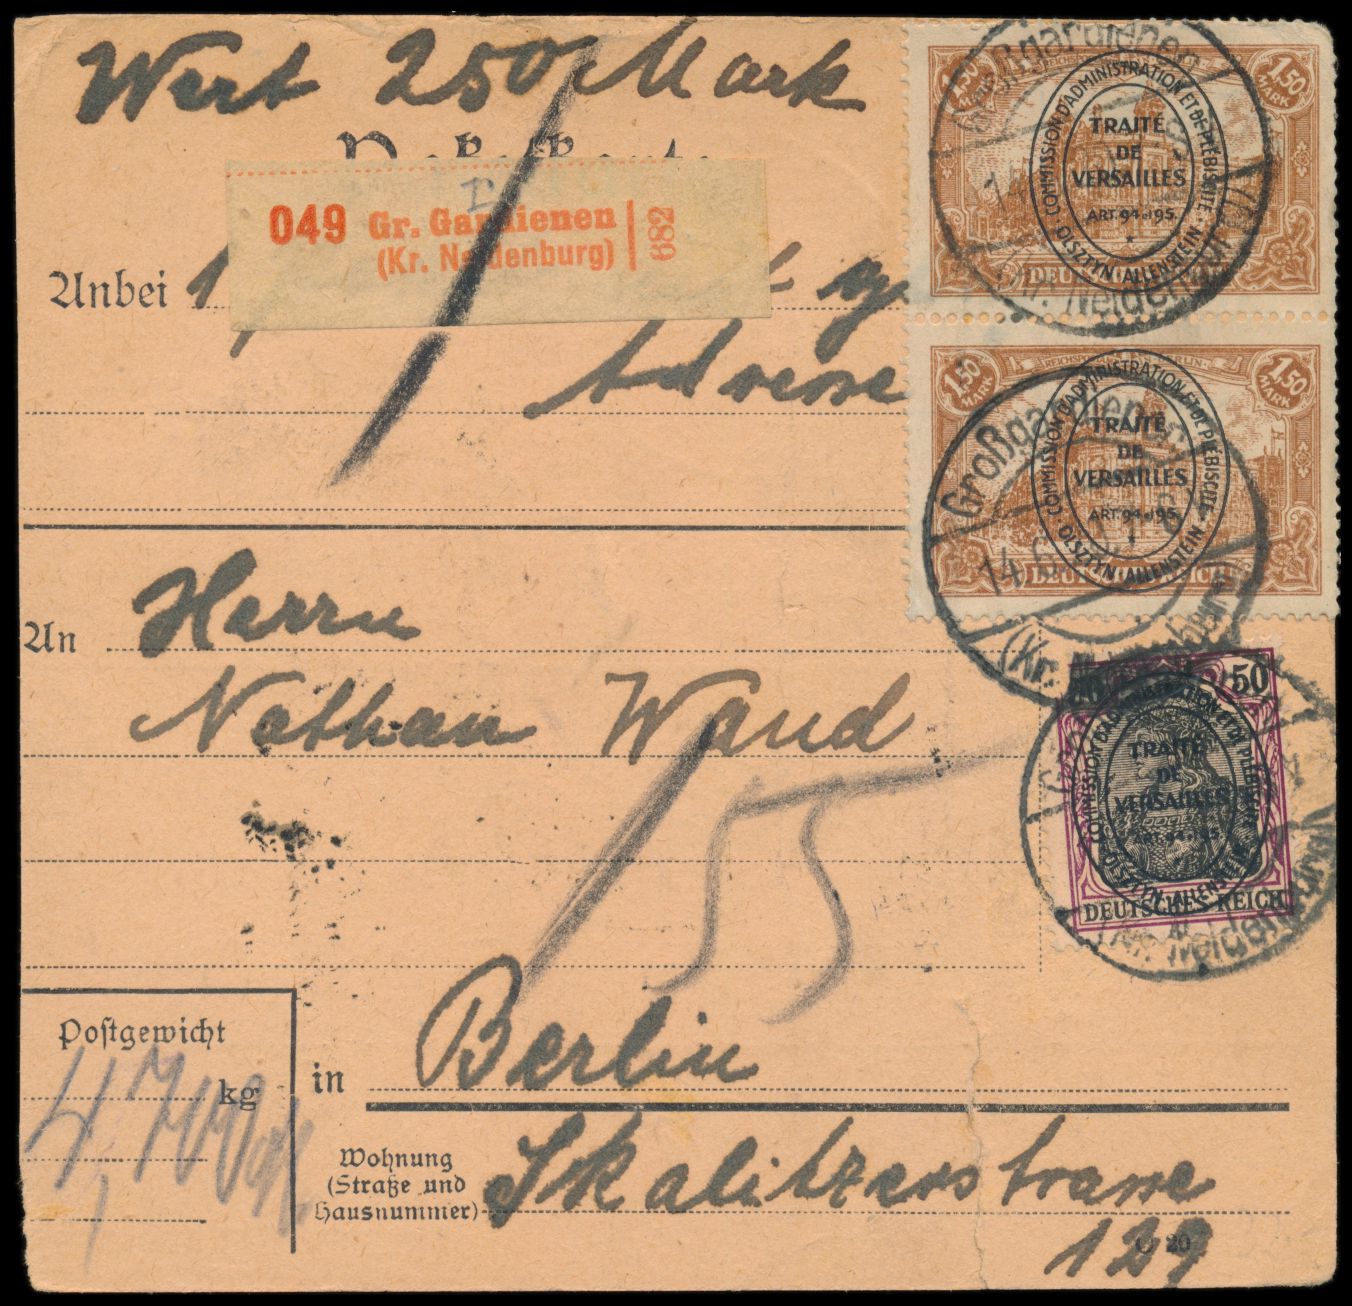 Wert 250 Mark
049 Gr. Gardienen
(Kr. Neidenburg)
682
Anbei 1
Adresse
An Herrn
Nathan Wand
55
Postgewicht
kg
in Berlin
Wohnung
(Straße und
Hausnummer)
Skalitzerstrasse
129
C 20
1,50 MARK
1,50 MARK
COMMISSION D'ADMINISTRATION ET DE PLÉBISCITE
TRAITÉ
DE
VERSAILLES
ART. 94 et 95
OLSZTYN ALLENSTEIN
DEUTSCHES REICH
Großgardienen
(Kr. Neidenburg)
1,50 MARK
1,50 MARK
COMMISSION D'ADMINISTRATION ET DE PLÉBISCITE
TRAITÉ
DE
VERSAILLES
ART. 94 et 95
OLSZTYN ALLENSTEIN
DEUTSCHES REICH
Großgardienen
14
(Kr. Neidenburg)
50
COMMISSION D'ADMINISTRATION ET DE PLÉBISCITE
TRAITÉ
DE
VERSAILLES
ART. 94 et 95
OLSZTYN ALLENSTEIN
DEUTSCHES REICH
(Kr. Neidenburg)